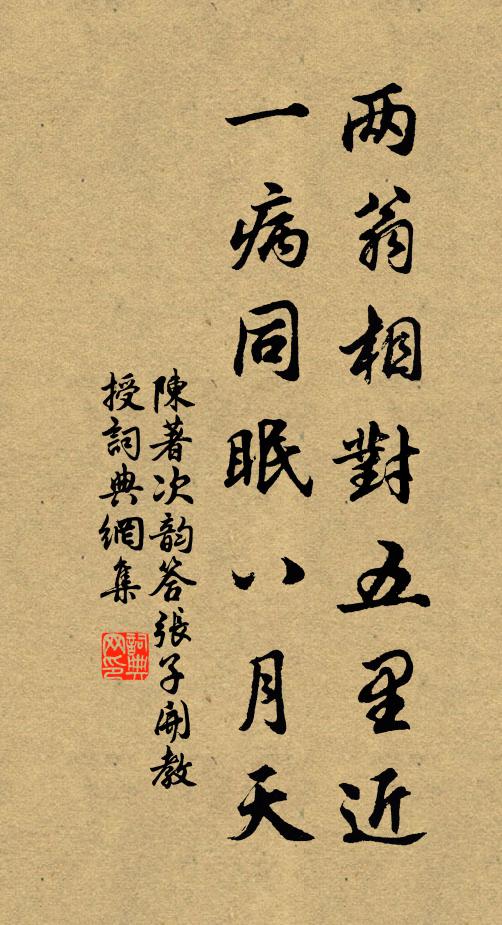 两翁相對五里近
一病同眠八月天
陳著次韵答張子開教
授詞典網集
詞典
网印